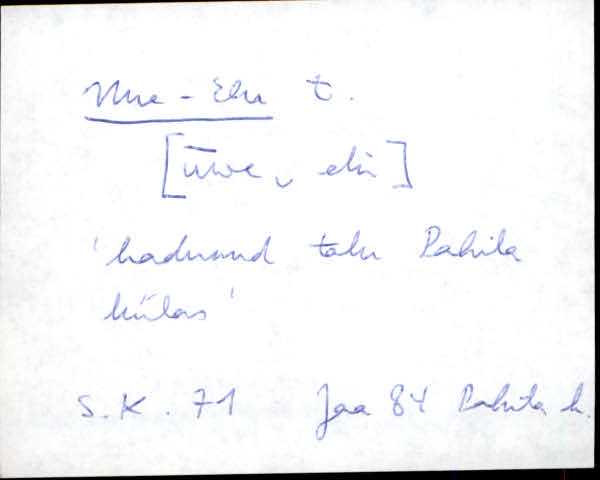 Uue-Elu t.
[ūwe‿elu]
'kadunud talu Pahila
külas'
S.K. 71 Jaa 84 Pahila k.